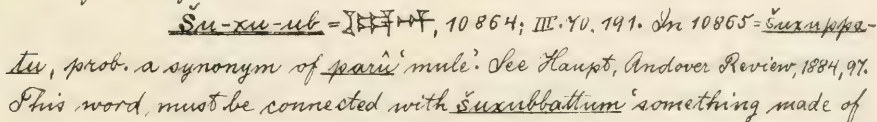 Šu-xu-ub = , 10864; III. 70. 191. In 10865 = šuxuppa-
tu, prob. a synonym of parû 'mule'. See Haupt, Andover Review, 1884, 97.
This word must be connected with šuxubbattum 'something made of